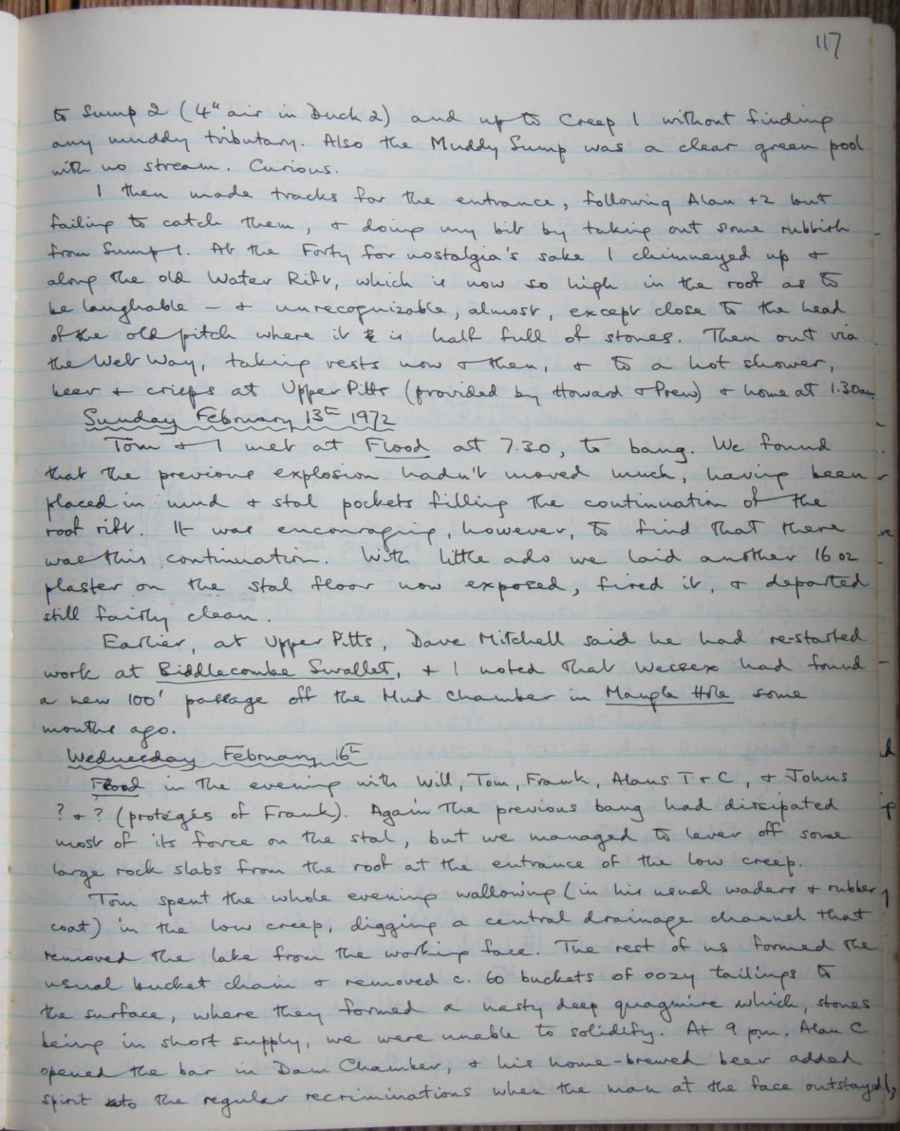 117
to Sump 2 (4" air in Duck 2) and up to Creep 1 without finding
any muddy tributary. Also the Muddy Sump was a clear green pool
with no stream. Curious.
I then made tracks for the entrance, following Alan +2 but
failing to catch them, & doing my bit by taking out some rubbish
from Sump 1. At the Forty for nostalgia's sake I chimneyed up &
along the old Water Rift, which is now so high in the roof as to
be laughable – & unrecognizable, almost, except close to the head
of the old pitch where it is half full of stones. Then out via
the Wet Way, taking rests now & then, & to a hot shower,
beer & crisps at Upper Pitts (provided by Howard & Prew) & home at 1.30am
Sunday February 13th 1972
Tom & I met at Flood at 7.30, to bang. We found
that the previous explosion hadn't moved much, having been
placed in mud & stal pockets filling the continuation of the
roof rift. It was encouraging, however, to find that there
was this continuation. With little ado we laid another 16 oz
plaster on the stal floor now exposed, fired it, & departed
still fairly clean.
Earlier, at Upper Pitts, Dave Mitchell said he had re-started
work at Biddlecombe Swallet, & I noted that Wessex had found
a new 100' passage off the Mud Chamber in Mangle Hole some
months ago.
Wednesday February 16th
Flood in the evening with Will, Tom, Frank, Alans T & C, & Johns
? & ? (protégés of Frank). Again the previous bang had dissipated
most of its force on the stal, but we managed to lever off some
large rock slabs from the roof at the entrance of the low creep.
Tom spent the whole evening wallowing (in his usual waders & rubber
coat) in the low creep, digging a central drainage channel that
removed the lake from the working face. The rest of us formed the
usual bucket chain & removed c. 60 buckets of oozy tailings to
the surface, where they formed a nasty deep quagmire which, stones
being in short supply, we were unable to solidify. At 9 pm. Alan C
opened the bar in Dam Chamber, & his home-brewed beer added
spirit to the regular recriminations when the man at the face outstayed